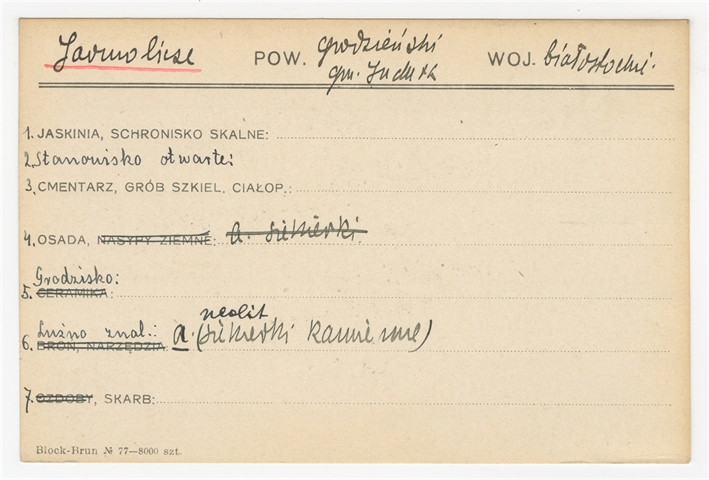 Jarmolicse POW. grodzieński WOJ. białostocki.
gm. Indura
1. JASKINIA, SCHRONISKO SKALNE:
2. Stanowisko otwarte:
3. CMENTARZ, GRÓB SZKIEL. CIAŁOP.:
4. OSADA, NASYPY ZIEMNE: a. siekierki
Grodzisko:
5. CERAMIKA:
neolit
Luźno znal.: a. (siekierki kamienne)
6. BROŃ, NARZĘDZIA
7. OZDOBY, SKARB:
Block-Brun № 77—8000 szt.